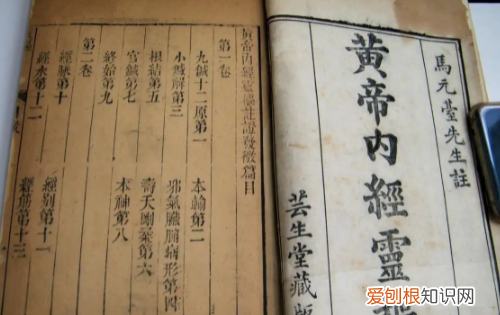 馬元臺先生註
黄帝内經靈
芸生堂藏版
黄帝内經靈樞註證發微篇目
第一卷
九鍼十二原第一 本輸第二
小鍼解第三 邪氣臟腑病形第四
根結第五 壽夭剛柔第六
官鍼第七 本神第八
終始第九
第二卷
經脉第十 經别第十一
經水第十二 經筋第十三
爱刨根知识网